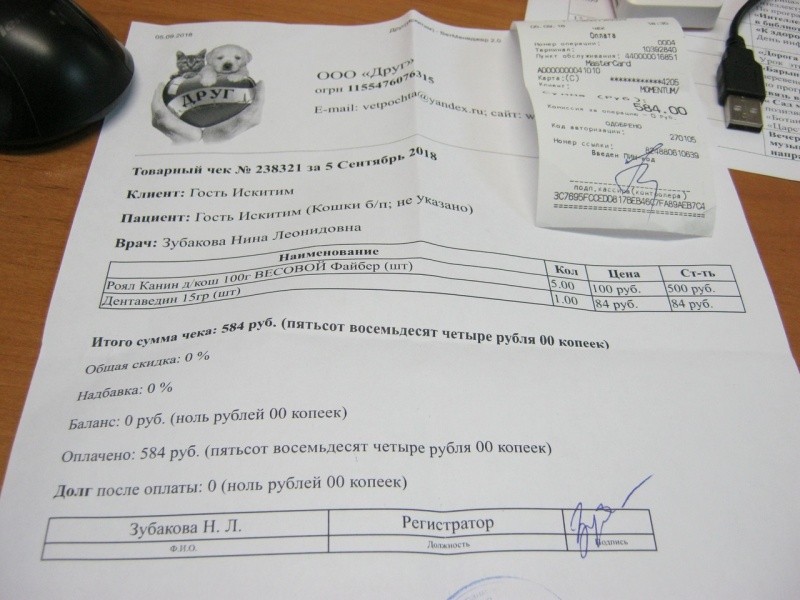 05.09.2018
ДРУГ
ООО «Друг»
огрн 1155476076315
E-mail: vetpochta@yandex.ru; сайт: w
Товарный чек № 238321 за 5 Сентябрь 2018
Клиент: Гость Искитим
Пациент: Гость Искитим (Кошки б/п; не Указано)
Врач: Зубакова Нина Леонидовна
Наименование Кол Цена Ст-ть
Роял Канин д/кош 100г ВЕСОВОЙ Файбер (шт) 5.00 100 руб. 500 руб.
Дентаведин 15гр (шт) 1.00 84 руб. 84 руб.
Итого сумма чека: 584 руб. (пятьсот восемьдесят четыре рубля 00 копеек)
Общая скидка: 0 %
Надбавка: 0 %
Баланс: 0 руб. (ноль рублей 00 копеек)
Оплачено: 584 руб. (пятьсот восемьдесят четыре рубля 00 копеек)
Долг после оплаты: 0 (ноль рублей 00 копеек)
Зубакова Н. Л. Регистратор
Ф.И.О. Должность Подпись
Оплата
Номер операции: 0004
Терминал: 10392840
Пункт обслуживания: 440000016851
MasterCard
A0000000041010
Карта:(C) ************4205
Клиент: MOMENTUM/
584.00
Комиссия за операцию - 0 Руб.
ОДОБРЕНО
Код авторизации: 270105
Номер ссылки: 824880610639
Введен ПИН-код
подп.кассира(контролера)